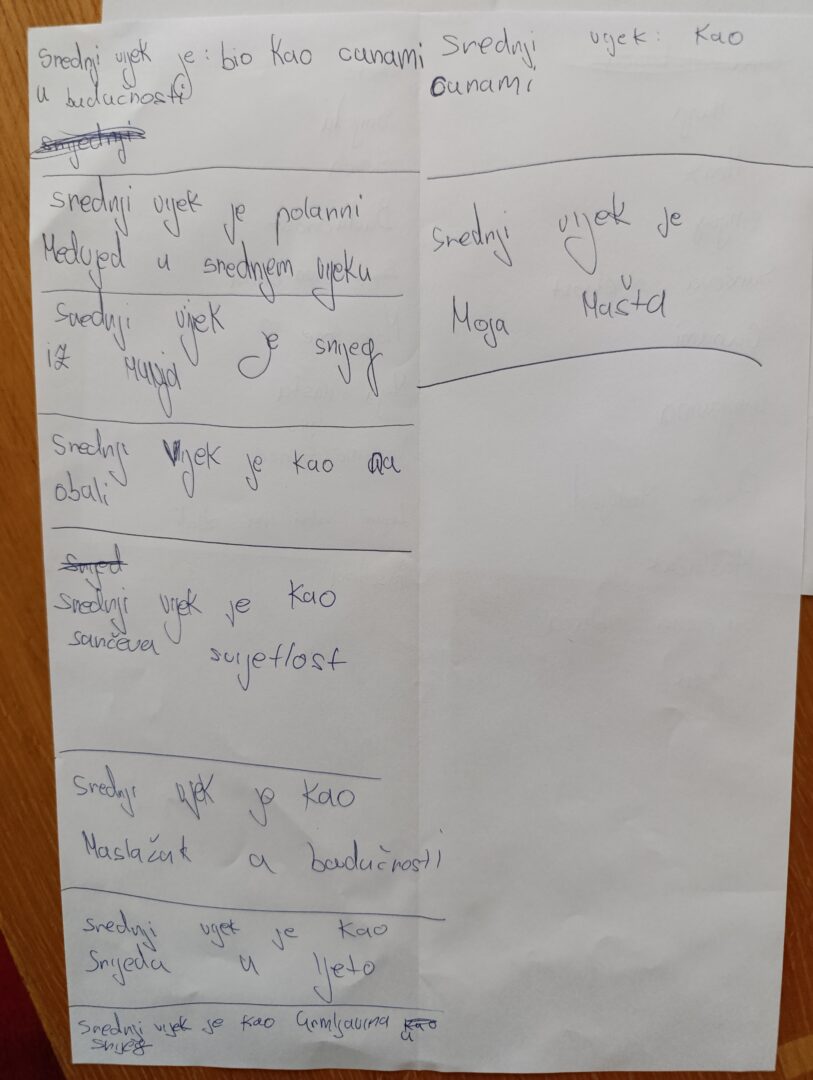 Srednji vijek je: bio kao cunami
u budučnosti
snijednji
Srednji vijek je polanni
Medvjed u srednjem vijeku
Srednji vijek je snijeg
iz Munja
Srednji vijek je kao na
obali
snijed
Srednji vijek je kao
sančeva svijetlost
Srednji vijek je kao
Maslačak u budučnosti
Srednji vijek je kao
Snijeda u ljeto
Srednji vijek je kao Grmljavina kao
u
snijeg
Srednji vijek: kao
cunami
Srednji vijek je
Moja Mašta